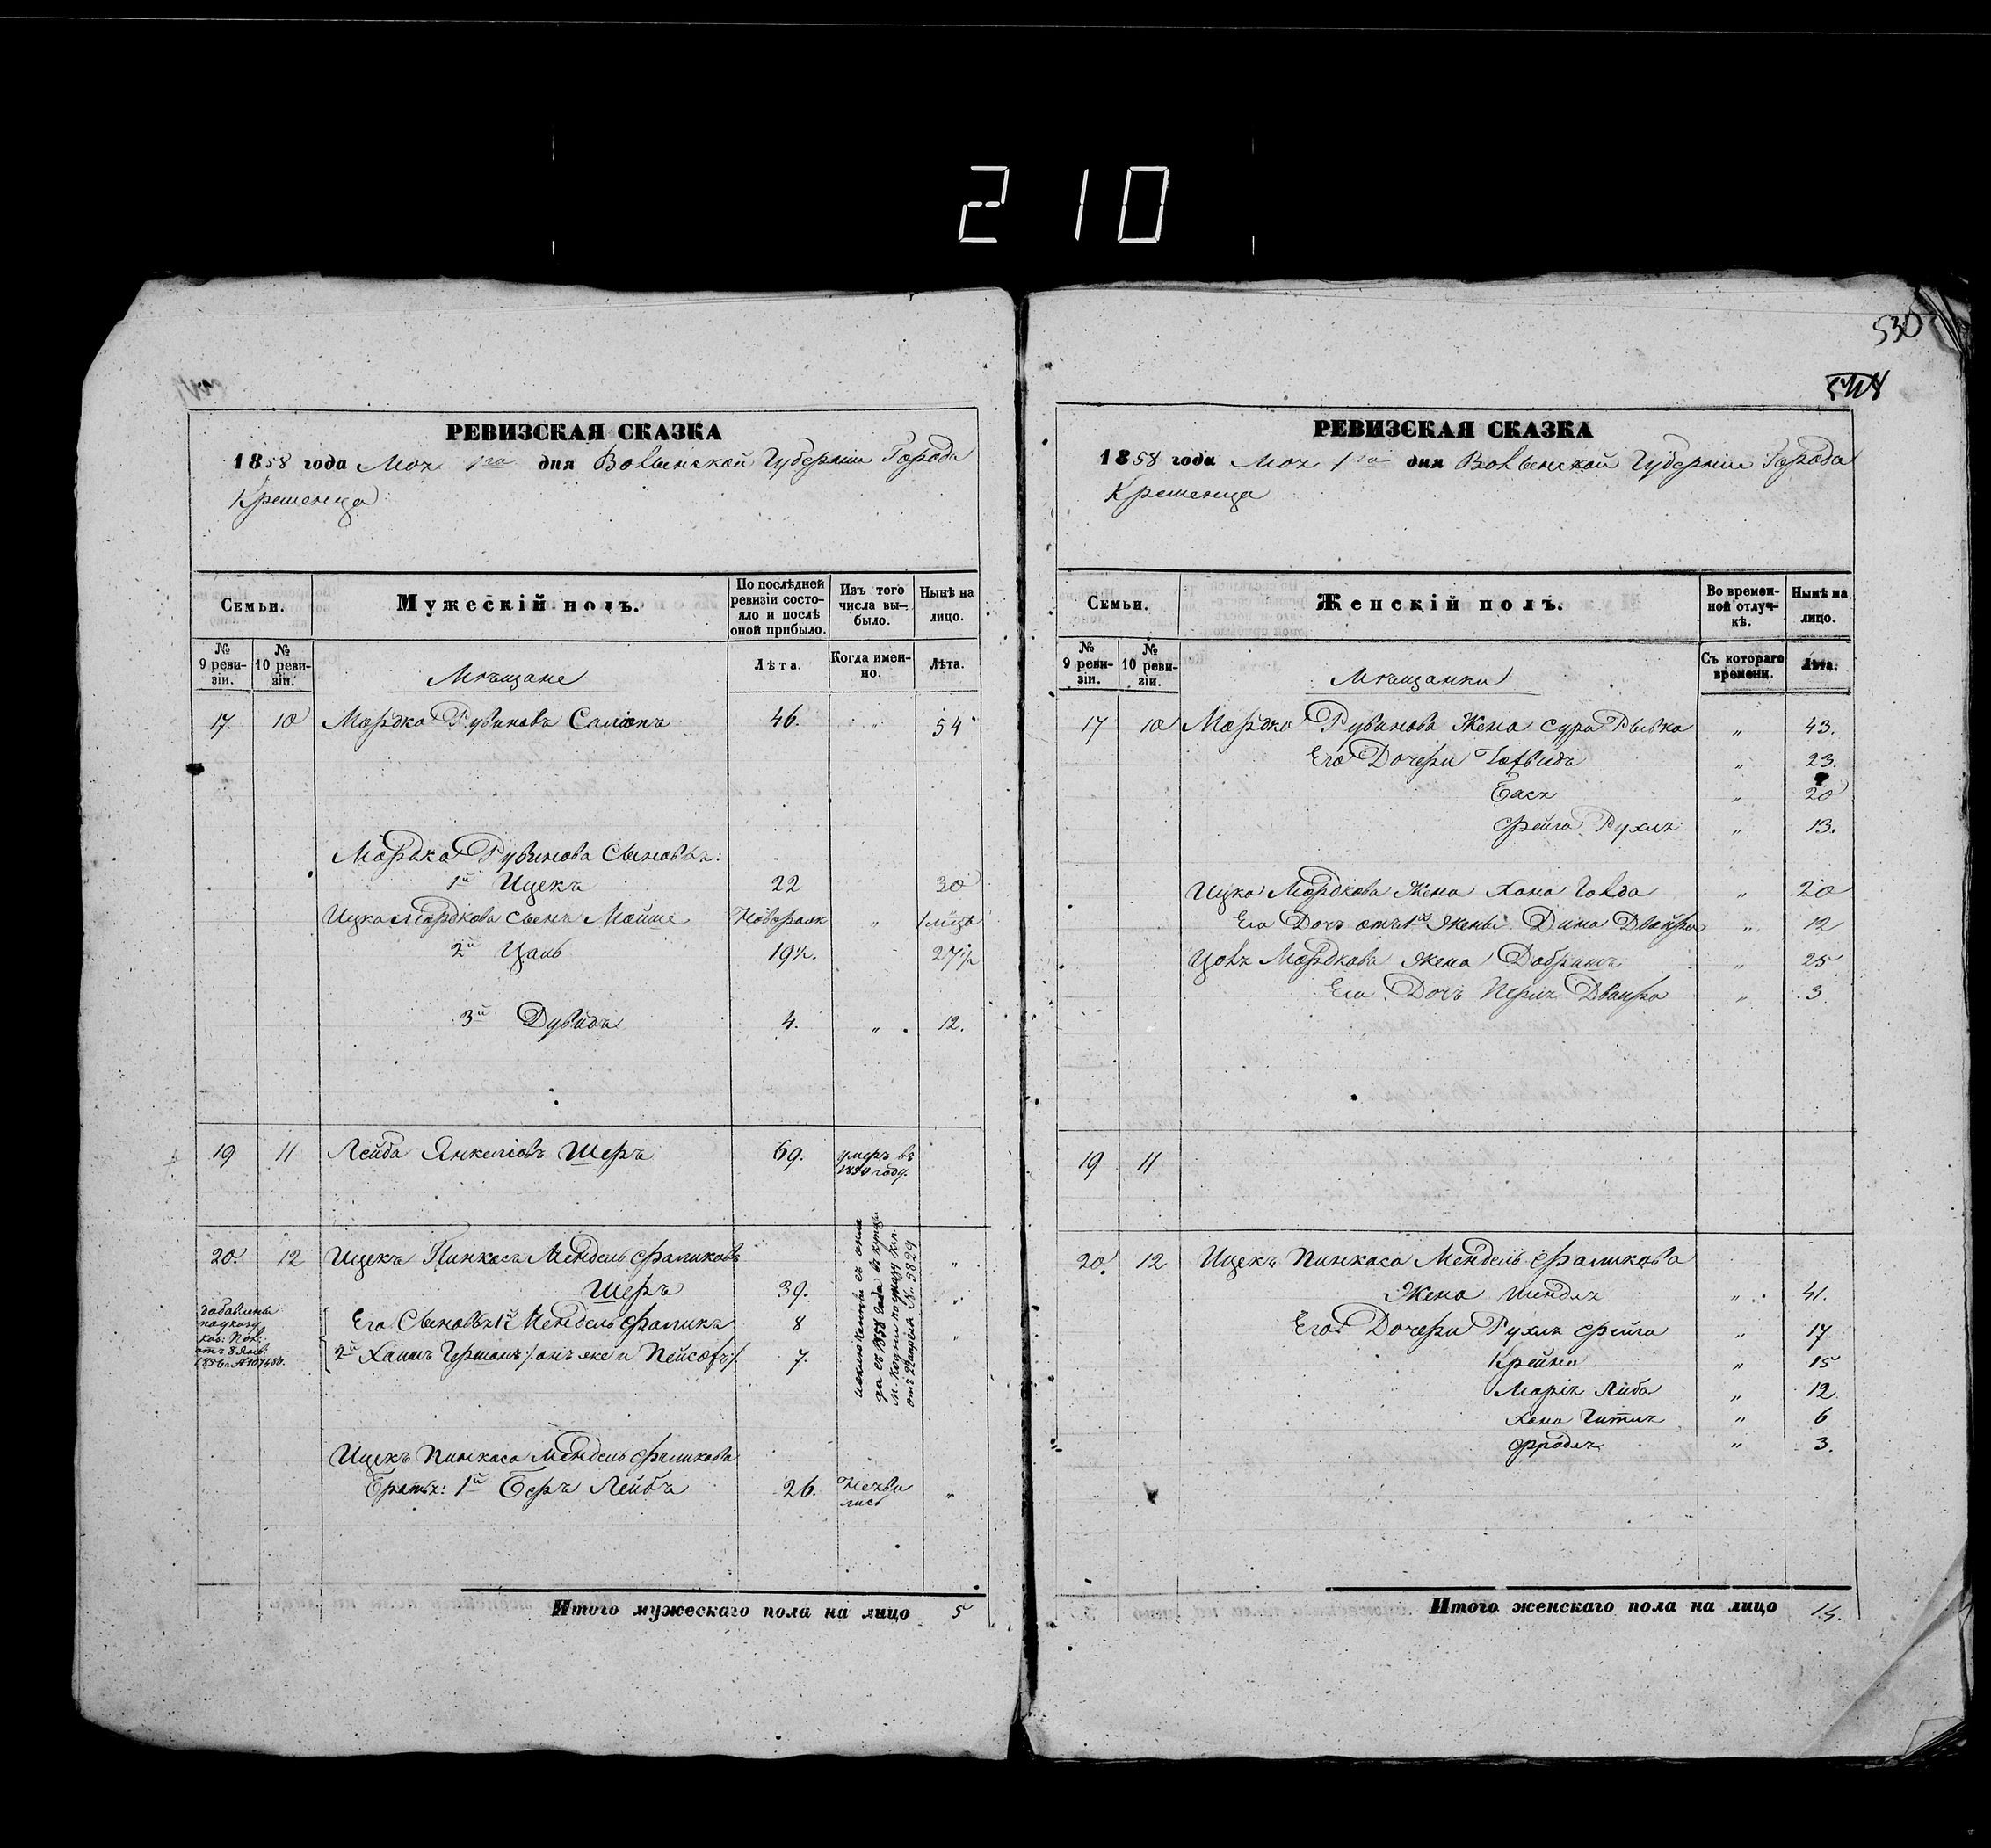 210
530
РЕВИЗСКАЯ СКАЗКА
1858 года Мая 1го дня Волынской Губерніи Города
Кременца
Семьи.
Мужескій полъ.
По послѣдней ревизіи состояло и послѣ оной прибыло.
Изъ того числа выбыло.
Нынѣ на лицо.
№ 9 ревизіи.
№ 10 ревизіи.
Мѣщане
Лѣта.
Когда именно.
Лѣта.
17. 10 Мордко Рувиновъ Саліонъ 46. " 54
Мордка Рувинова Сыновья:
1й Ицекъ 22 30
Ицка Мордкова сынъ Мойше Новорож " 1 мѣсц
2й Цаль 19½. 27½
3й Дувидъ 4. " 12.
19 11 Лейба Янкеліовъ Шеръ 69. умеръ въ
1850 году.
20. 12 Ицекъ Пинкасъ Мендель Фаликовъ "
Шеръ 39. "
добавлены
по указу
каз: Пол:
отъ 8 Янв:
Его Сыновья 1й Мендель Фаликъ 8 "
2й Хаимъ Германъ /: онъ же и Пейсахъ :/ 7.
исключенны съ окла
да съ 1858 года въ купцы
по указу Каз. П.
отъ 22 апрѣля № 5829
Ицекъ Пинкаса Мендель Фаликова
Братъ: 1й Беръ Лейбъ 26. Неяви
лись "
Итого мужескаго пола на лицо 5
РЕВИЗСКАЯ СКАЗКА
1858 года Мая 1го дня Волынской Губерніи Города
Кременца
Семьи.
Женскій полъ.
Во временной отлучкѣ.
Нынѣ на лицо.
№ 9 ревизіи.
№ 10 ревизіи.
Мѣщанки
Съ котораго времени.
Лѣта.
17 10 Мордка Рувинова Жена Сура Рывка " 43.
Его Дочери " 23.
Бася " 20
Фейга Рухля " 13.
Ицка Мордкова Жена Хана Голда " 20
Его Дочь отъ 1й Жены Дина Двойра " 12
Цаля Мордкова Жена Добришъ " 25
Его Дочь Перля Двойра " 3
19 11
20. 12 Ицекъ Пинкаса Мендель Фаликова
Жена Шендля " 41.
Его Дочери Рухля Фейга " 17
Крейна " 15
Марія Либа " 12
Хана Гитля " 6
Фрадля " 3.
Итого женскаго пола на лицо 14.